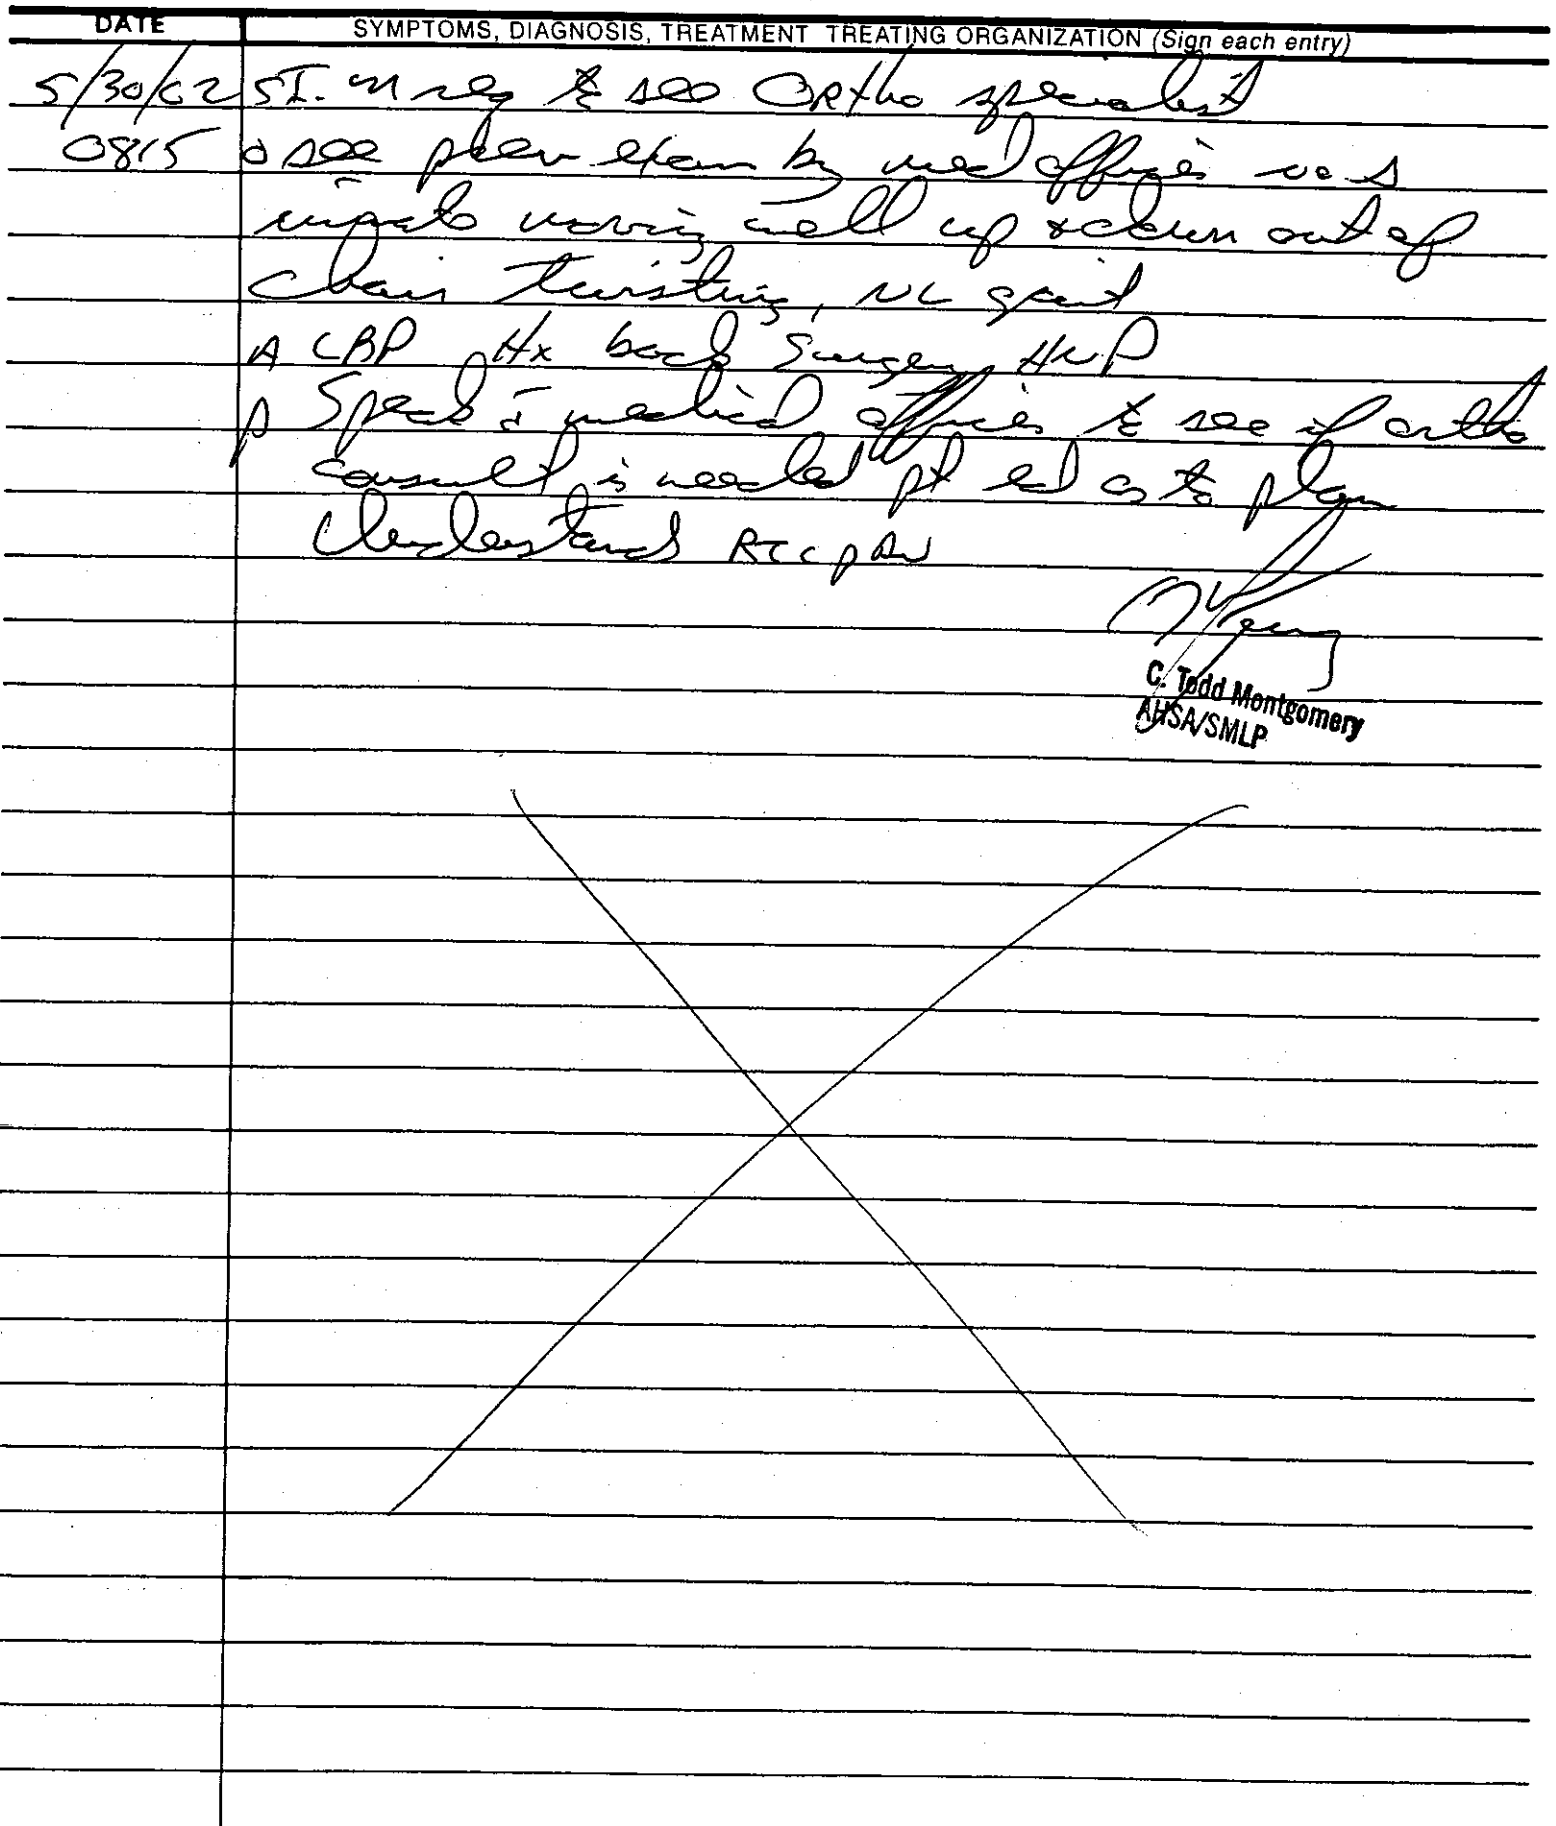 DATE SYMPTOMS, DIAGNOSIS, TREATMENT TREATING ORGANIZATION (Sign each entry)
5/30/02 S I.M req to see ORtho specialist
0815 O see prev exam by med officer
inmate moving well up & down out of
chair twisting, NL gait
A CBP Hx back Surgery HNP
P Speak c̄ medical officer to see if ortho
consult is needed pt ed as to plan
Understands RTC prn
C. Todd Montgomery
AHSA/SMLP